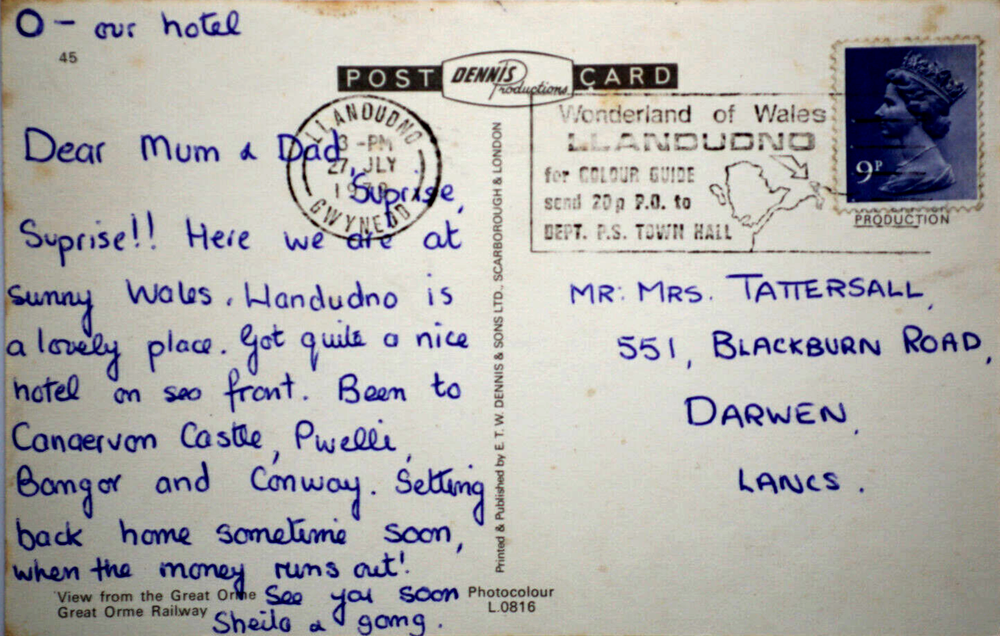 O - our hotel
45
POST DENNIS Productions CARD
LLANDUDNO
3 -PM
27 JLY
GWYNEDD
Wonderland of Wales
LLANDUDNO
for COLOUR GUIDE
send 20p P.O. to
DEPT. P.S. TOWN HALL
9P
PRODUCTION
Dear Mum & Dad,
Suprise,
Suprise!! Here we are at
sunny Wales. Llandudno is
a lovely place. Got quite a nice
hotel on sea front. Been to
Canaervon Castle, Pwelli,
Bangor and Conway. Setting
back home sometime soon,
when the money runs out!
See you soon
Sheila & gang.
View from the Great Orme
Great Orme Railway
Printed & Published by E. T. W. DENNIS & SONS LTD., SCARBOROUGH & LONDON
Photocolour
L.0816
MR: MRS. TATTERSALL,
551, BLACKBURN ROAD,
DARWEN,
LANCS.